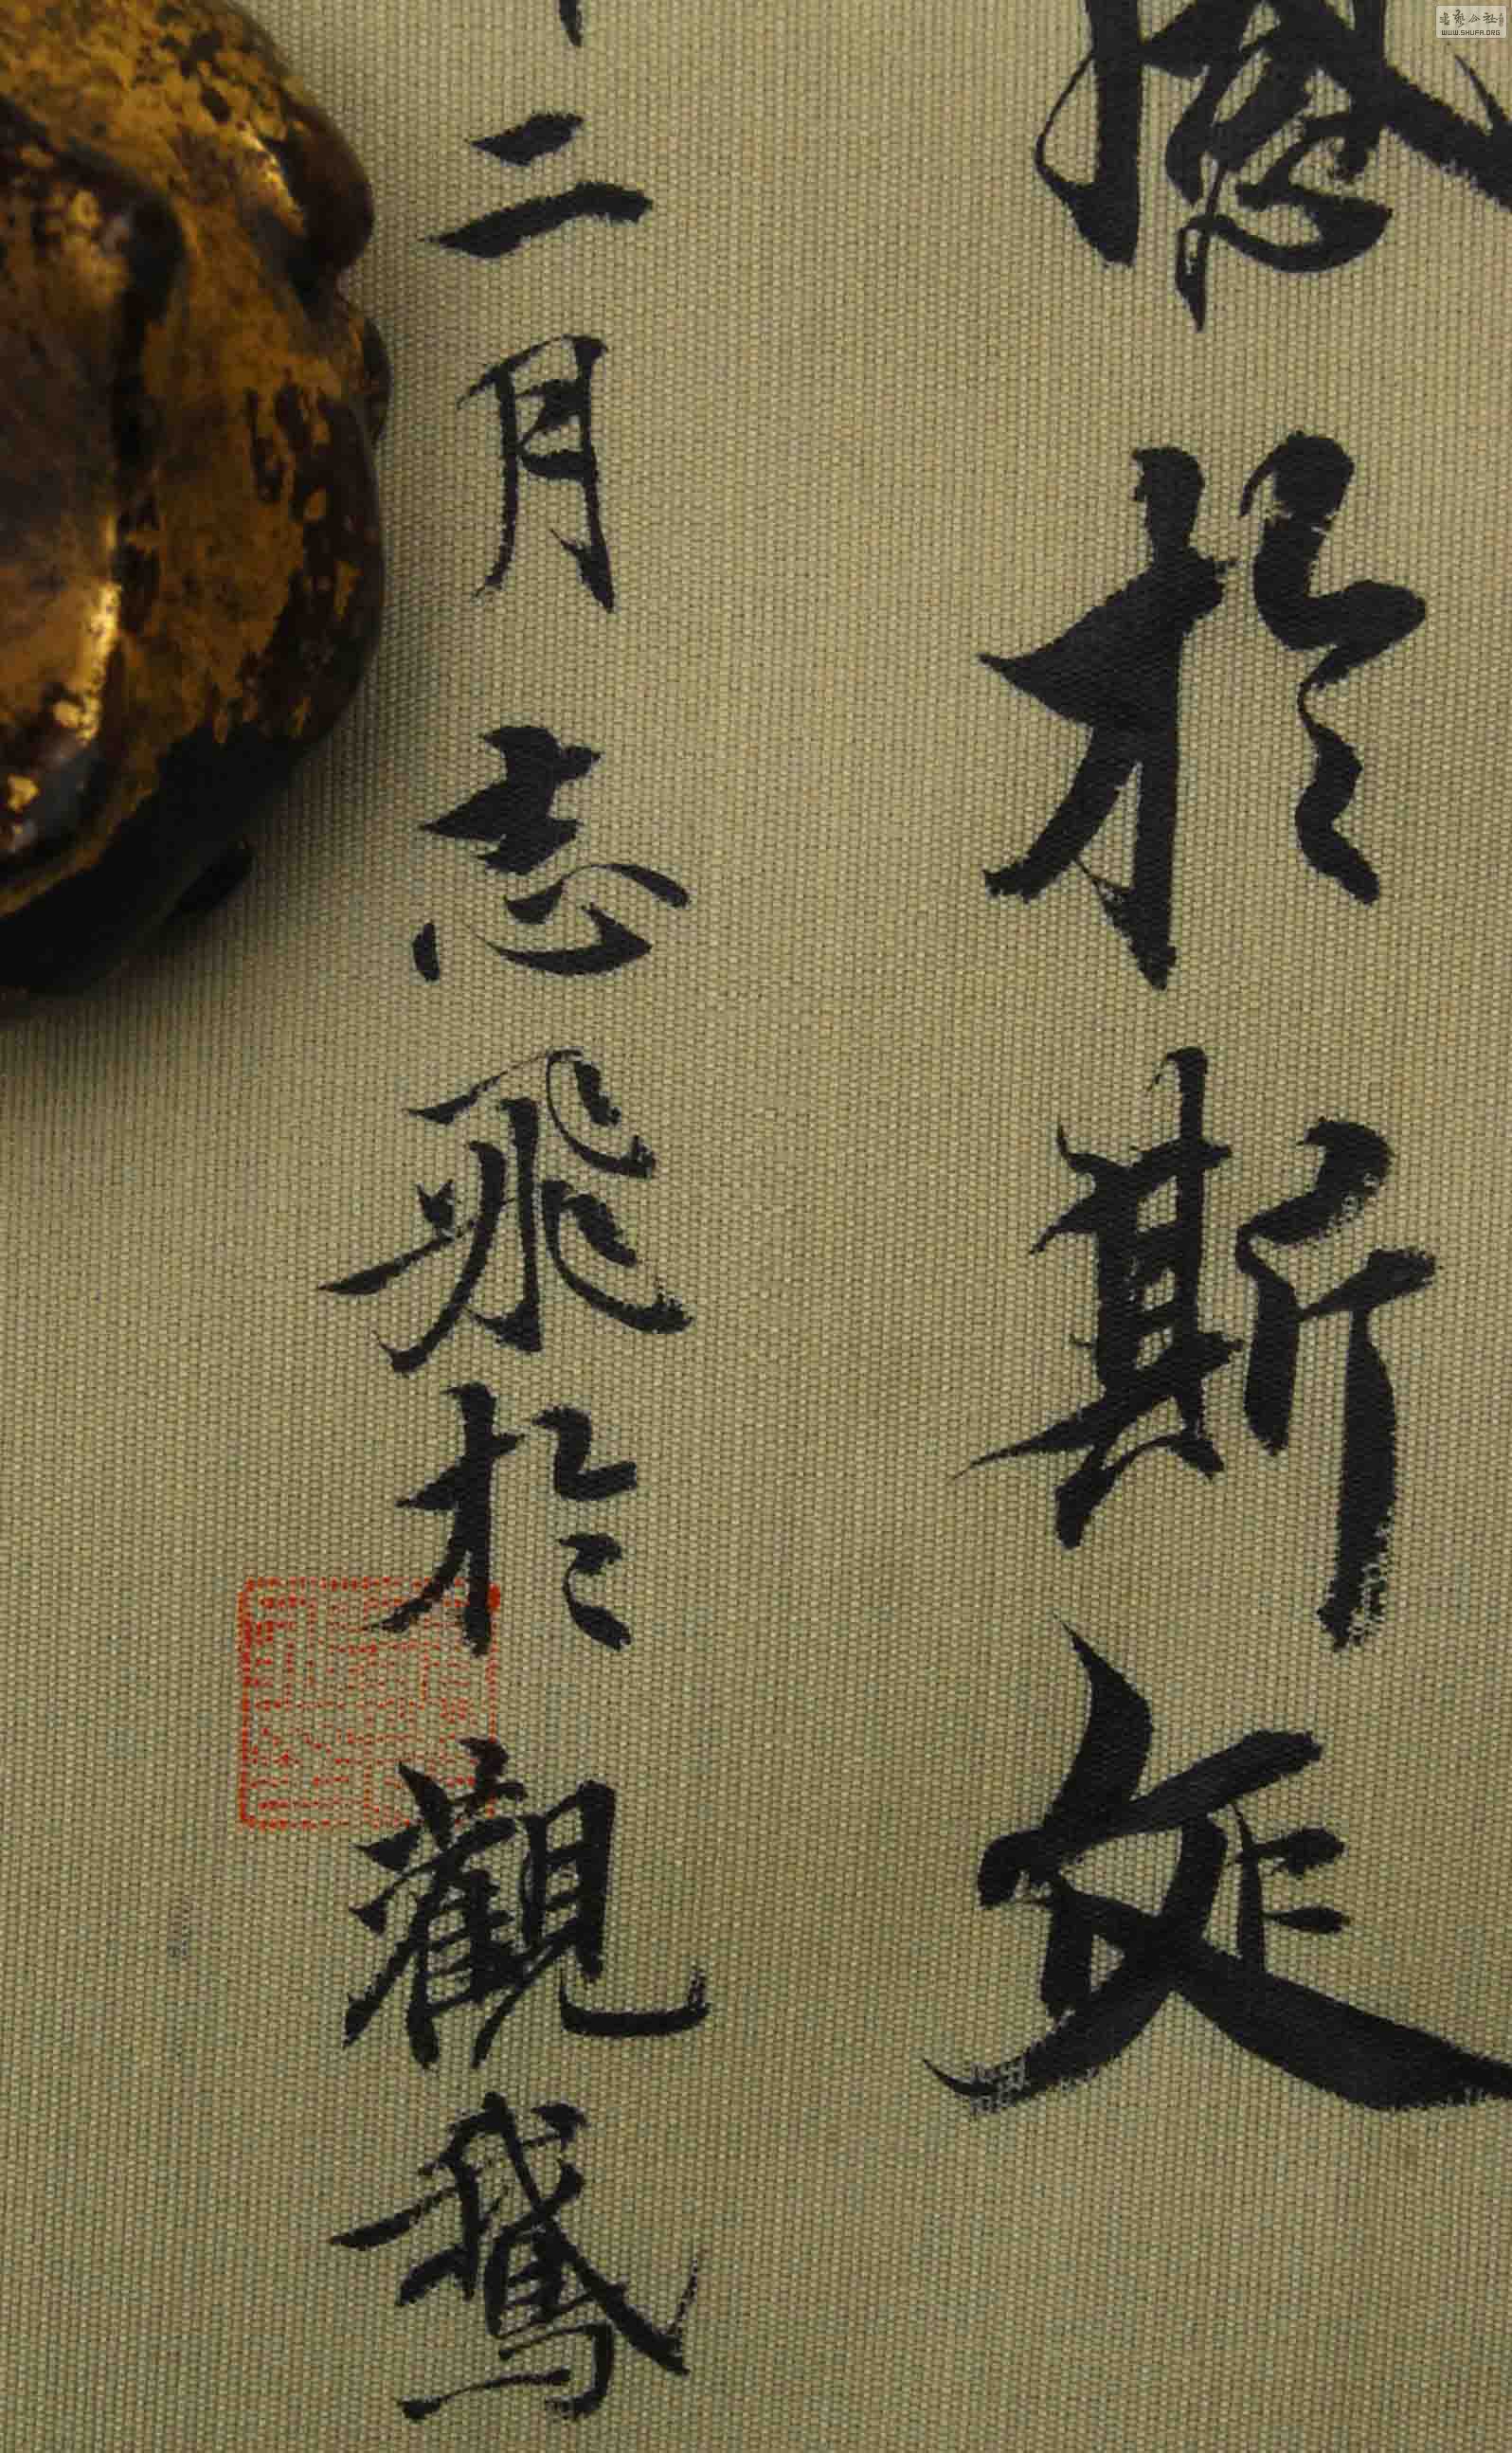 感於斯文
二月志飛於觀鵝
書藝公社
WWW.SHUFA.ORG